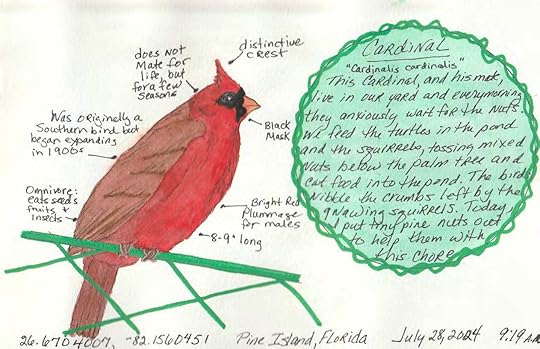 distinctive
crest
does NOT
Mate for
life, but
for a few
seasons
Was originally a
Southern bird but
began expanding
in 1900s
Black
Mask
Omnivore:
eats seeds
fruits +
insects
Bright Red
Plummage
for males
8-9" long
CARDINAL
"Cardinalis cardinalis"
This Cardinal, and his mate,
live in our yard and everymorning
they anxiously wait for the nuts
we feed the turtles in the pond
and the squirrels, tossing mixed
nuts below the palm tree and
cat food into the pond. The birds
nibble the crumbs left by the
gnawing squirrels. Today,
I put tiny pine nuts out
to help them with
this chore
26.6704007, -82.1560451
Pine Island, Florida
July 28, 2024
9:19 A.M.